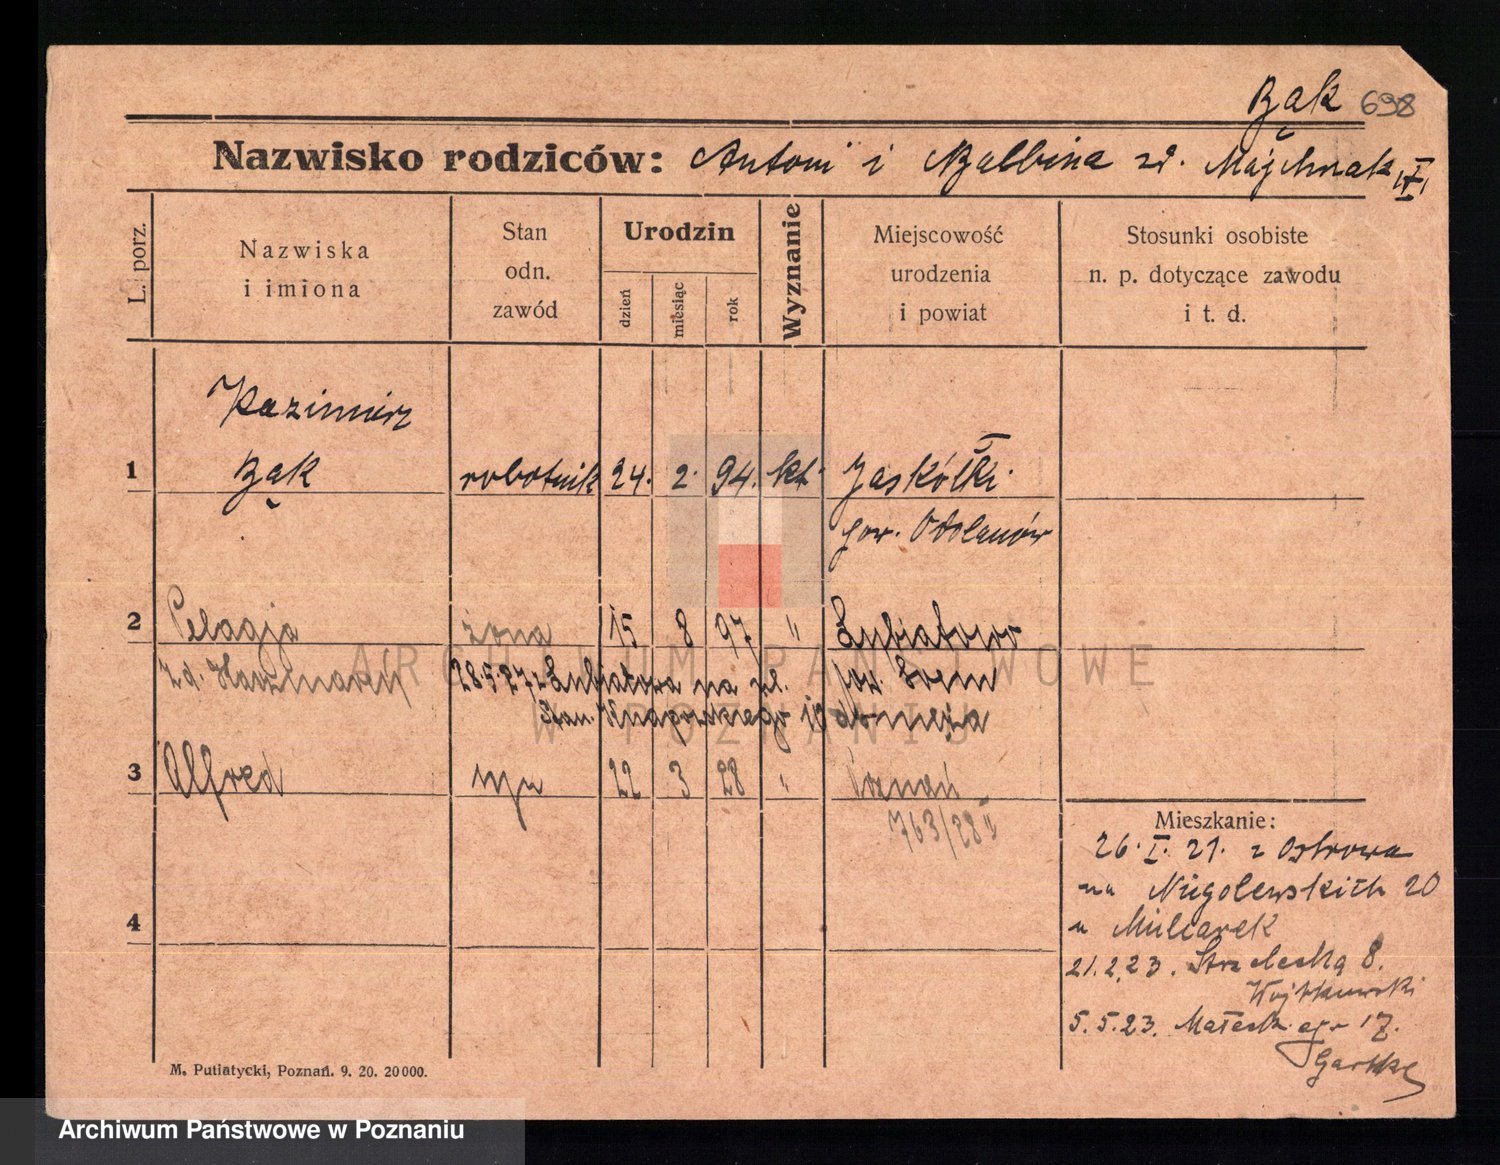 Bąk 698
Nazwisko rodziców: Antoni i Balbina zd. Majchrzak
L. porz.
Nazwiska i imiona
Stan odn. zawód
Urodzin
dzień
miesiąc
rok
Wyznanie
Miejscowość urodzenia i powiat
Stosunki osobiste n. p. dotyczące zawodu i t. d.
Kazimierz
1 Bąk robotnik 24. 2. 94. kt. Jaskółki.
pow. Odolanów
2 Pelagja żona 15 8 97 " Lubiatowo
zd. 28.5.27 z Lubiatowa na pl. pow. Śrem
Stan. 10
3 Alfred syn 22 3 28 " Poznań
763/28
4
Mieszkanie:
26. I. 21. z Ostrowa
na Niegolewskich 20
u Mulczarek
21.2.23. Strzelecka 8.
Wojtkowski
5.5.23. Małeckiego 17.
M. Putiatycki, Poznań. 9. 20. 20000.
ARCHIWUM PAŃSTWOWE
W POZNANIU
Archiwum Państwowe w Poznaniu